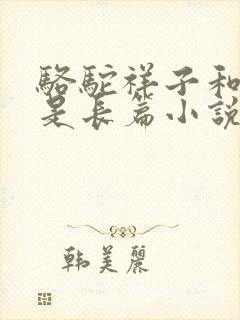 駱駝祥子和
是長篇小說
韓美麗